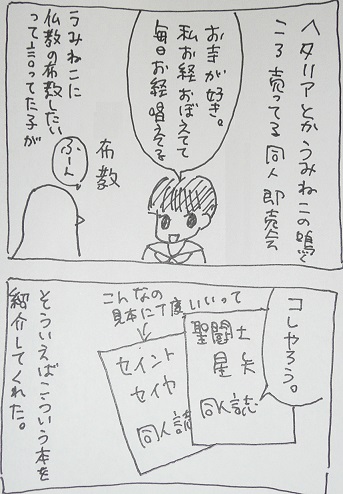 ヘタリアとかうみねこの鳴く
ころ売ってる同人即売会
お寺が好き。
私お経おぼえてて
毎日お経唱えてる
布教
ふーん
うみねこに
仏教の布教したい
って言ってた子が
コレやろう。
聖闘士
星矢
同人誌
こんなの
見本に丁度いいって
セイント
セイヤ
同人誌
そういえばこういう本を
紹介してくれた。